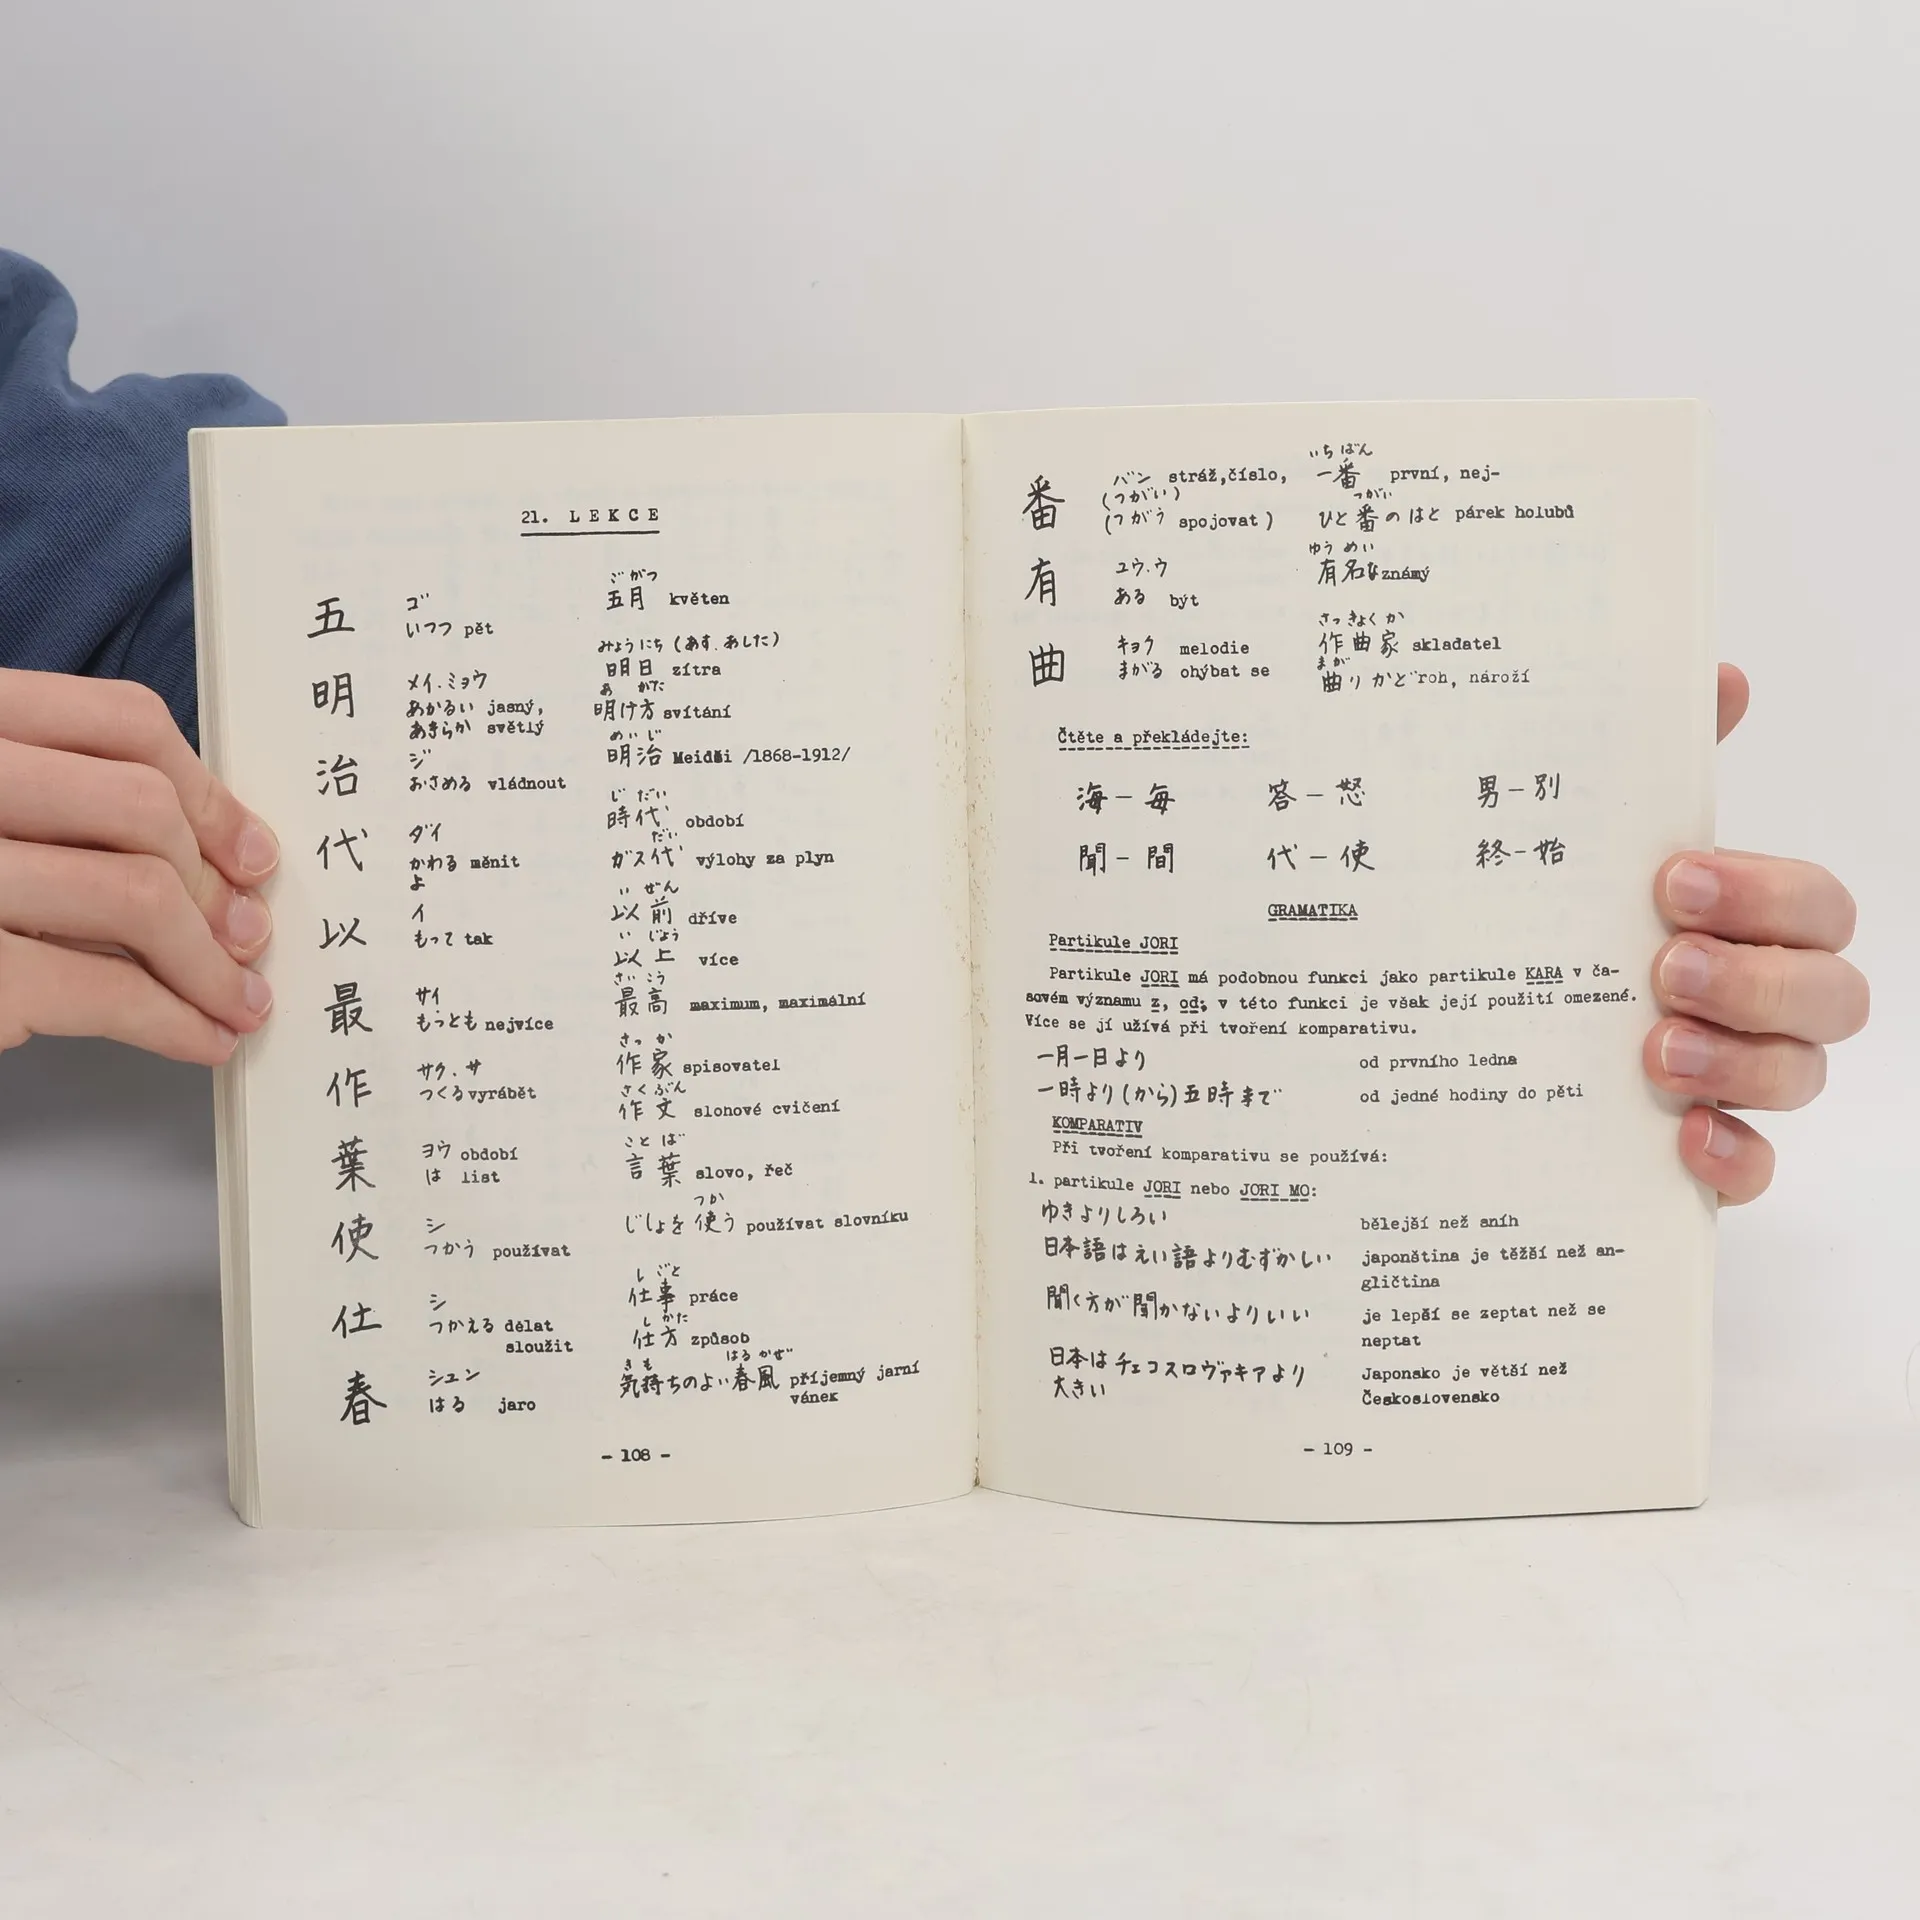 21. LEKCE
ごがつ
五 ゴ 五月 květen
いつつ pět
みょうにち (あす.あした)
明日 zítra
明 メイ.ミョウ
あ かた
あかるい jasný, 明け方 svítání
あきらか světlý
めいじ
治 ジ 明治 Meidži /1868-1912/
おさめる vládnout
じだい
時代 období
代 ダイ
だい
かわる měnit ガス代 výlohy za plyn
よ
いぜん
以 イ 以前 dříve
もって tak
いじょう
以上 více
さいこう
最 サイ 最高 maximum, maximální
もっとも nejvíce
さっか
作 サク.サ 作家 spisovatel
つくる vyrábět
さくぶん
作文 slohové cvičení
ことば
葉 ヨウ období 言葉 slovo, řeč
は list
つか
使 シ じしょを使う používat slovníku
つかう používat
しごと
仕 シ 仕事 práce
つかえる dělat
sloužit
しかた
仕方 způsob
きも はるかぜ
春 シュン 気持ちのよい春風 příjemný jarní
vánek
はる jaro
- 108 -
いちばん
番 バン stráž,číslo, 一番 první, nej-
(つがい) つがい
(つがう spojovat) ひと番のはと párek holubů
ゆうめい
有 ユウ.ウ 有名な známý
ある být
さっきょくか
曲 キョク melodie 作曲家 skladatel
まが
まがる ohýbat se 曲りかど roh, nároží
Čtěte a překládejte:
海－毎 答－怒 男－別
聞－間 代－使 終－始
GRAMATIKA
Partikule JORI
Partikule JORI má podobnou funkci jako partikule KARA v ča-
sovém významu z, od; v této funkci je však její použití omezené.
Více se jí užívá při tvoření komparativu.
一月一日より od prvního ledna
一時より(から)五時まで od jedné hodiny do pěti
KOMPARATIV
Při tvoření komparativu se používá:
1. partikule JORI nebo JORI MO:
ゆきよりしろい bělejší než sníh
日本語はえい語よりむずかしい japonština je těžší než an-
gličtina
聞く方が聞かないよりいい je lepší se zeptat než se
neptat
日本はチェコスロヴァキアより Japonsko je větší než
大きい Československo
- 109 -